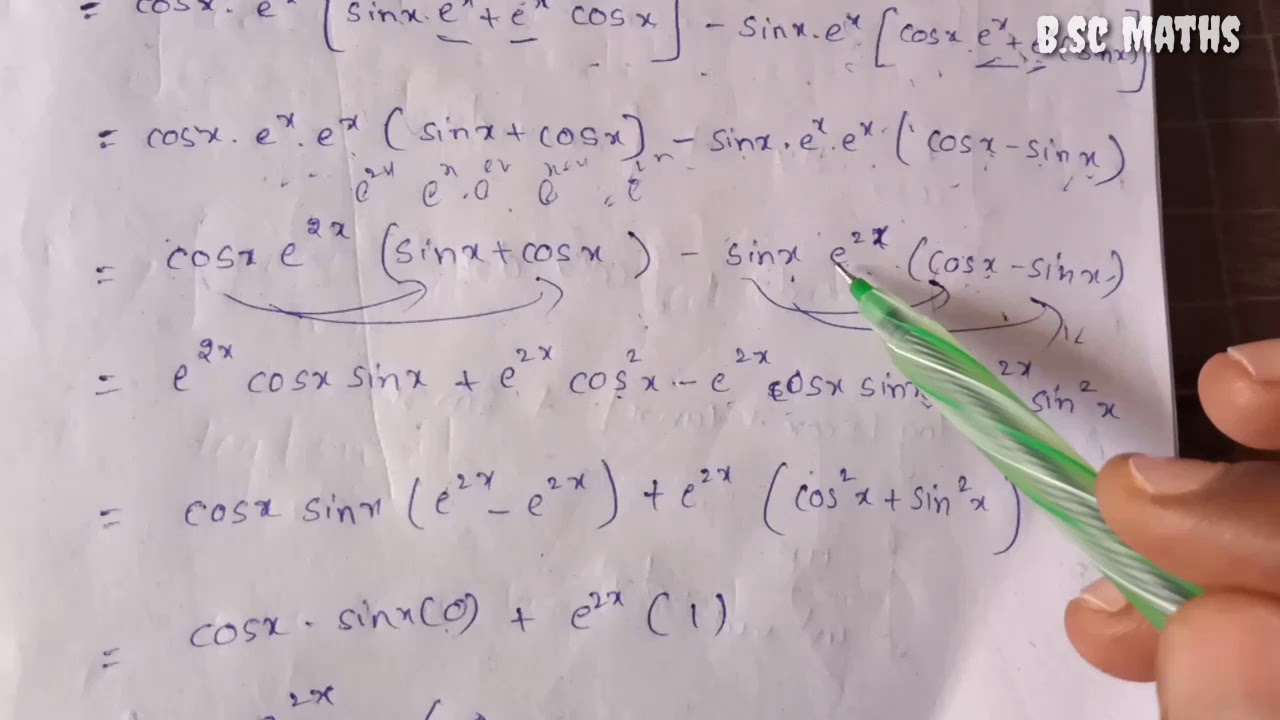 = cosx · eˣ [sinx·eˣ + eˣ cosx] - sinx·eˣ [cosx·eˣ +
B.SC MATHS
= cosx · eˣ · eˣ (sinx + cosx) - sinx · eˣ · eˣ (cosx - sinx)
= cosx e²ˣ (sinx + cosx) - sinx e²ˣ (cosx - sinx)
= e²ˣ cosx sinx + e²ˣ cos²x - e²ˣ cosx sinx 2x sin²x
= cosx sinx (e²ˣ - e²ˣ) + e²ˣ (cos²x + sin²x)
= cosx · sinx(0) + e²ˣ (1)